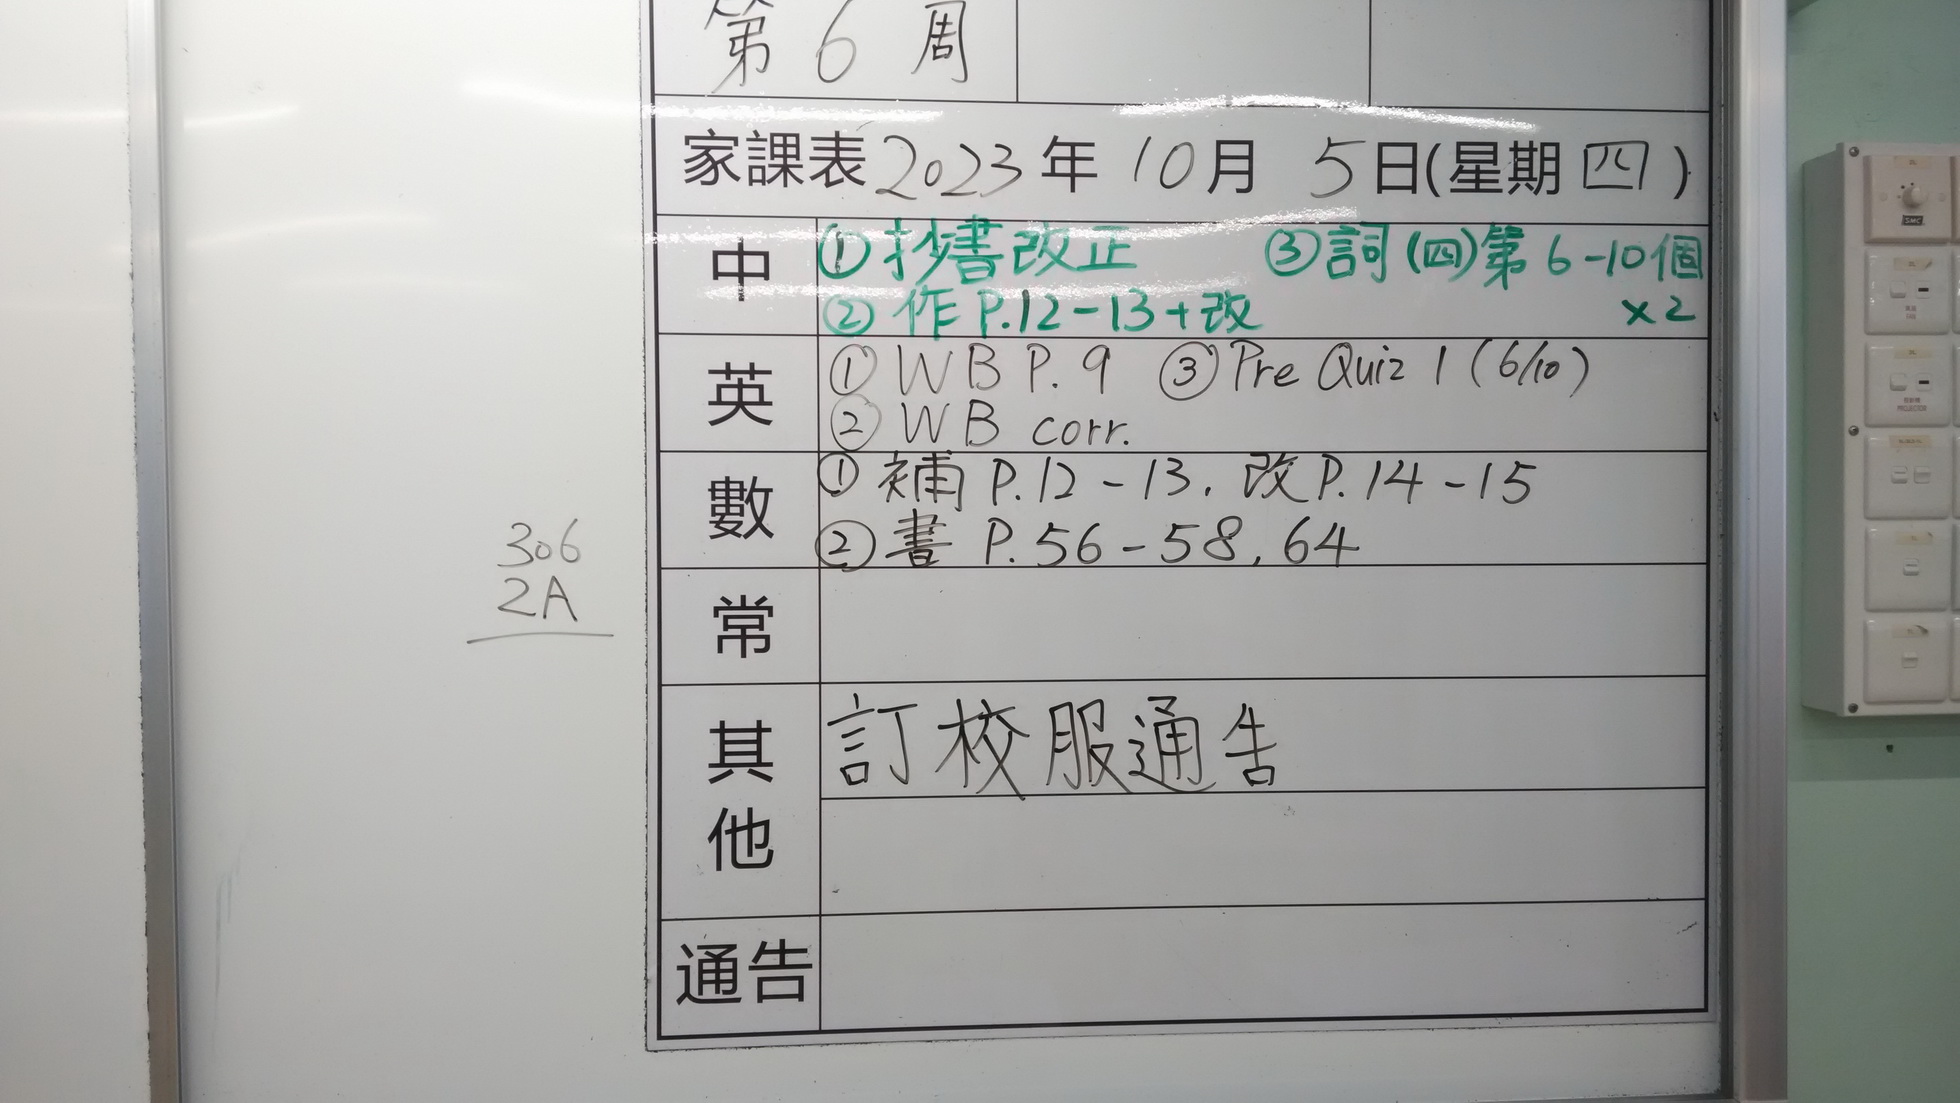 第6周
家課表2023年10月5日(星期四)
中
①抄書改正 ③詞(四)第6-10個
②作P.12-13+改 x2
英
①WB P.9 ③Pre Quiz 1 (6/10)
②WB corr.
數
①補P.12-13, 改P.14-15
②書P.56-58, 64
306
2A
常
其他
訂校服通告
通告
SMC
PROJECTOR